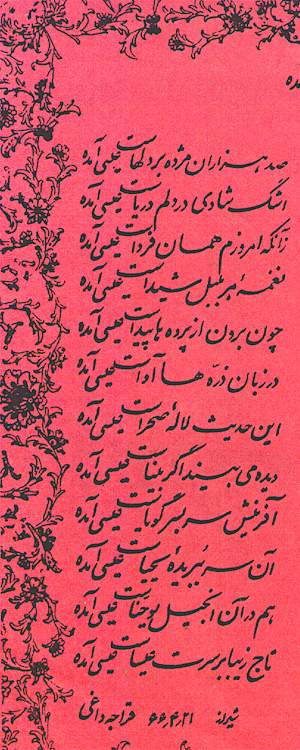 ده
صد هزاران مژده بر دلهاست عیسی آمده
اشک شادی در دلم دریاست عیسی آمده
زآنکه امروزم همان فرداست عیسی آمده
نغمهٔ هر بلبل شیداست عیسی آمده
چون برون از پرده ها پیداست عیسی آمده
در زبان ذرّه ها آواست عیسی آمده
این حدیث لالهٔ صحراست عیسی آمده
دیده می بیند اگر بیناست عیسی آمده
آفرینش سر بسر گویاست عیسی آمده
آن سر ببریدهٔ یحیاست عیسی آمده
هم در آن انجیل یوحناست عیسی آمده
تاج زیبا بر سرت عیساست عیسی آمده
شیراز ۶۶٫۴٫۲۱ قراجه داغی